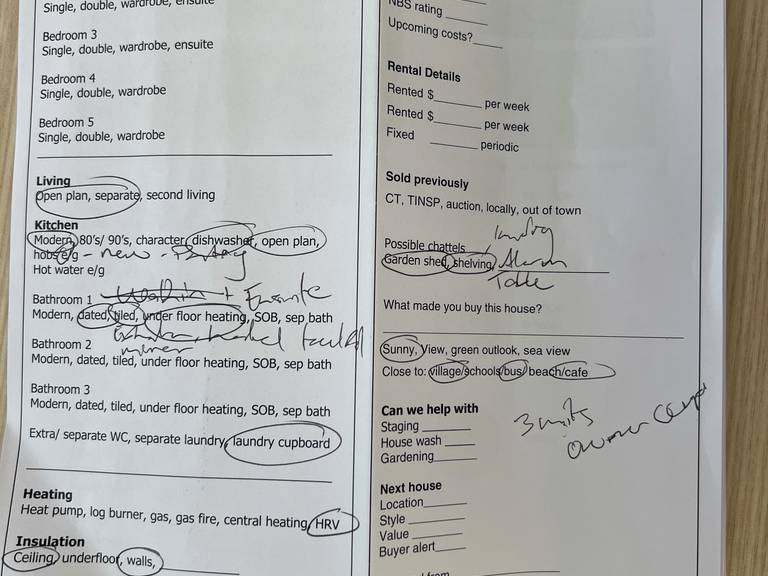 Single, double, wardrobe, ensuite
Bedroom 3
Single, double, wardrobe, ensuite
Bedroom 4
Single, double, wardrobe
Bedroom 5
Single, double, wardrobe
Living
Open plan, separate, second living
Kitchen
Modern, 80's/ 90's, character, dishwasher, open plan,
hobs e/g - new -
Hot water e/g
Bathroom 1 + Ensuite
Modern, dated, tiled, under floor heating, SOB, sep bath
Bathroom 2
Modern, dated, tiled, under floor heating, SOB, sep bath
Bathroom 3
Modern, dated, tiled, under floor heating, SOB, sep bath
Extra/ separate WC, separate laundry, laundry cupboard
Heating
Heat pump, log burner, gas, gas fire, central heating, HRV
Insulation
Ceiling, underfloor, walls,
NBS rating
Upcoming costs?
Rental Details
Rented $ per week
Rented $ per week
Fixed periodic
Sold previously
CT, TINSP, auction, locally, out of town
laundry
Possible chattels
Garden shed, shelving, Alarm
Table
What made you buy this house?
Sunny, View, green outlook, sea view
Close to: village/schools/bus/beach/cafe
Can we help with
Staging
House wash
Gardening
3 units
owner
Next house
Location
Style
Value
Buyer alert